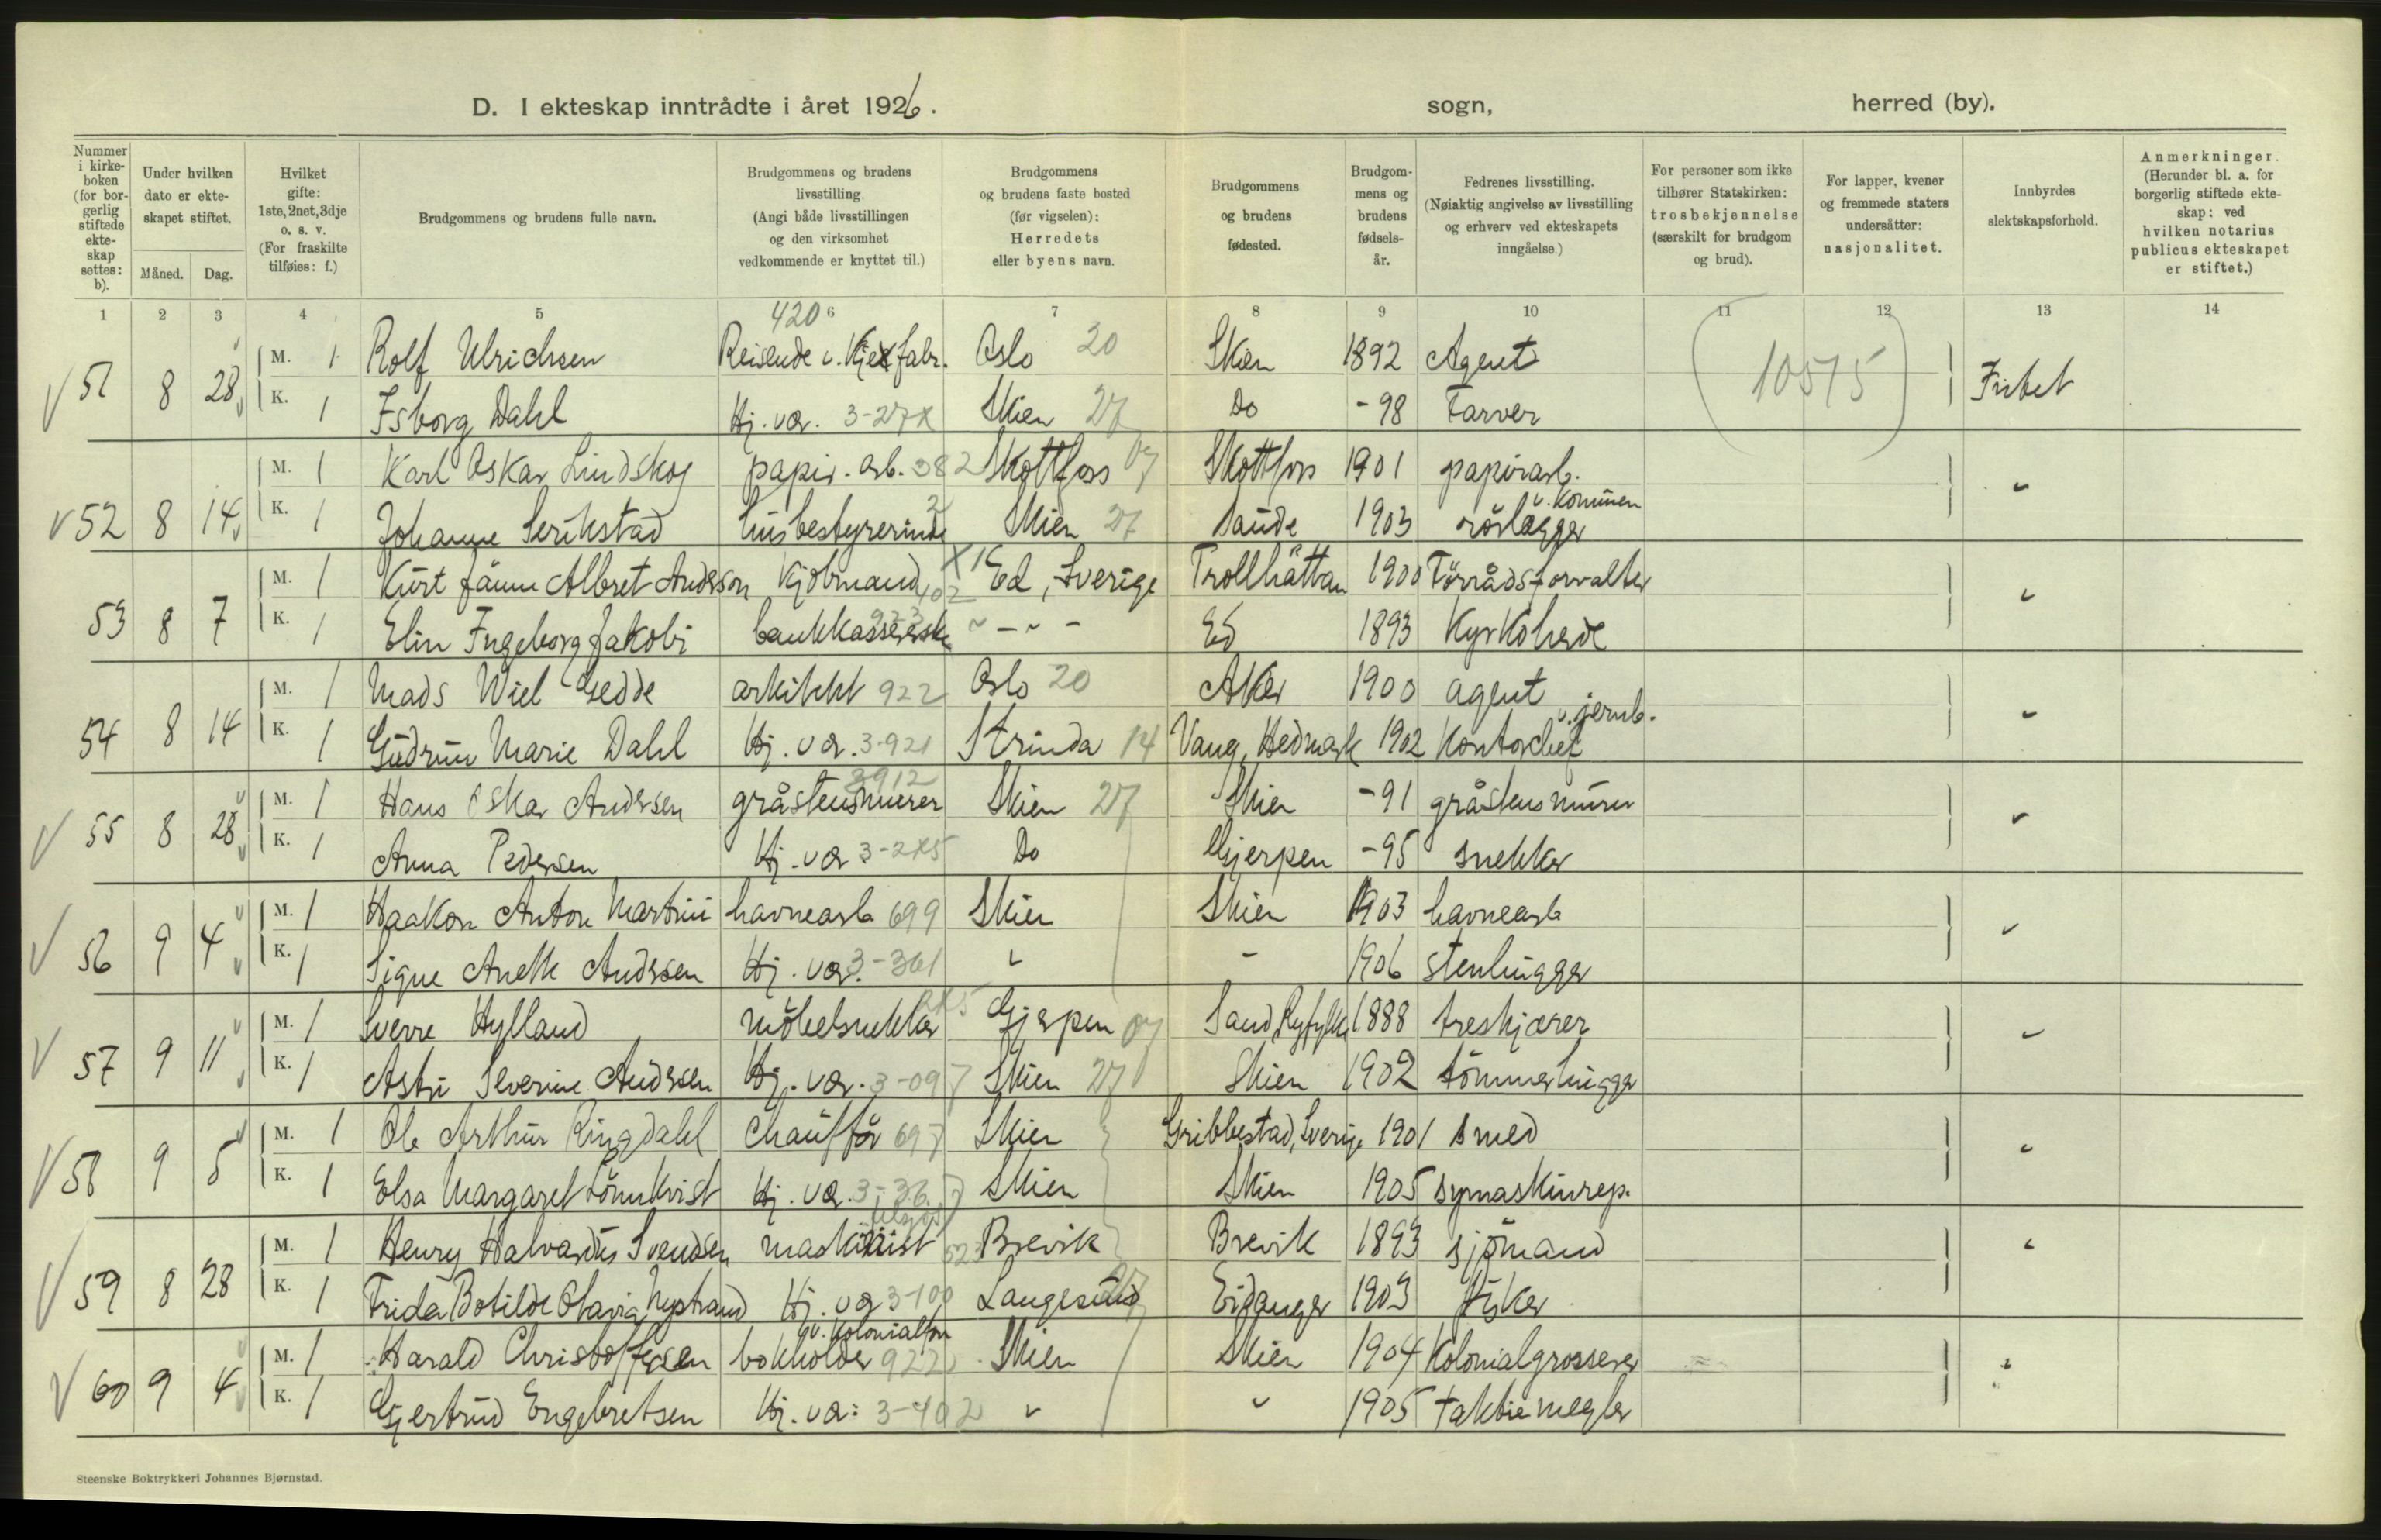 D. I ekteskap inntrådte i året 1926.
sogn,
herred (by).
Nummer i kirke-boken (for bor-gerlig stiftede ekte-skap settes: b).
Under hvilken dato er ekte-skapet stiftet.
Måned. Dag.
Hvilket gifte: 1ste, 2net, 3dje o. s. v. (For fraskilte tilføies: f.)
Brudgommens og brudens fulle navn.
Brudgommens og brudens livsstilling. (Angi både livsstillingen og den virksomhet vedkommende er knyttet til.)
Brudgommens og brudens faste bosted (før vigselen): Herredets eller byens navn.
Brudgommens og brudens fødested.
Brudgom-mens og brudens fødsels-år.
Fedrenes livsstilling. (Nøiaktig angivelse av livsstilling og erhverv ved ekteskapets inngåelse.)
For personer som ikke tilhører Statskirken: trosbekjennelse (særskilt for brudgom og brud).
For lapper, kvener og fremmede staters undersåtter: nasjonalitet.
Innbyrdes slektskapsforhold.
Anmerkninger. (Herunder bl. a. for borgerlig stiftede ekte-skap: ved hvilken notarius publicus ekteskapet er stiftet.)
1 2 3 4 5 6 7 8 9 10 11 12 13 14
420
V 51 8 28 M. 1 Rolf Ulrichsen Reisende v. Kjexfabr. Oslo 20 Skien 1892 Agent (10515) Intet
K. 1 Isborg Dahl Hj. vær. 3-27x Skien 27 Do -98 Farver
V 52 8 14 M. 1 Karl Oskar Lindskog papir. arb. 382 Skotfoss 07 Skotfoss 1901 papirarb. "
v. kommunen
K. 1 Johanne Serikstad husbestyrerinde Skien 27 Saude 1903 rörlægger
53 8 7 M. 1 Kurt Albret Anderson Kjöbmand 402 Ed, Sverige Trollhättan 1900 Förrådsforvalter "
K. 1 Elin Ingeborg Jakobi bankkassererske 923 " - " - Ed 1893 Kyrkoherde
54 8 14 M. 1 Mads Wiel Gedde arkitekt 922 Oslo 20 Aker 1900 agent "
v. jernb.
K. 1 Gudrun Marie Dahl Hj. vær. 3-921 Strinda 14 Vang, Hedmark 1902 Kontorchef
3912
V 55 8 28 M. 1 Hans Oskar Andersen gråstensmurer Skien 27 Skien -91 gråstensmurer "
K. 1 Anna Pedersen Hj. vær 3-2x5 Do Gjerpen -95 snekker
V 56 9 4 M. 1 Haakon Anton Martini havnearb 699 Skien Skien 1903 havnearb "
K. 1 Signe Anette Andersen Hj. vær. 3-361 " - 1906 stenhugger
V 57 9 11 M. 1 Sverre Hylland möbelsnekker Gjerpen 07 Sand, Ryfylke 1888 treskjærer "
K. 1 Astri Severine Andersen Hj. vær. 3-097 Skien 27 Skien 1902 tömmerhugger
V 58 9 5 M. 1 Ole Arthur Ringdahl Chaufför 697 Skien Gribbestad, Sverige 1901 smed "
K. 1 Elsa Margaret Lönnkvist Hj. vær. 3-36 Skien Skien 1905 symaskinrep.
V 59 8 28 M. 1 Henry Halvardus Svendsen maskinist 523 Brevik Brevik 1893 sjömand "
K. 1 Frida Botilde Olavia Nystrand Hj. vær 3-100 Langesund 27 Eidanger 1903 fisker
v. Kolonialforr.
V 60 9 4 M. 1 Harald Christoffersen bokholder 922 Skien Skien 1904 Kolonialgrosserer "
K. 1 Gjertrud Engebretsen Hj. vær: 3-402 " " 1905 aktiemegler
Steenske Boktrykkeri Johannes Bjørnstad.